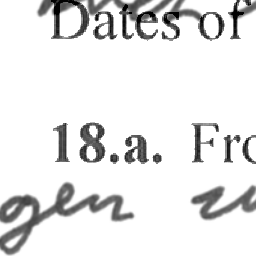 Dates of
18.a. Fro
gen